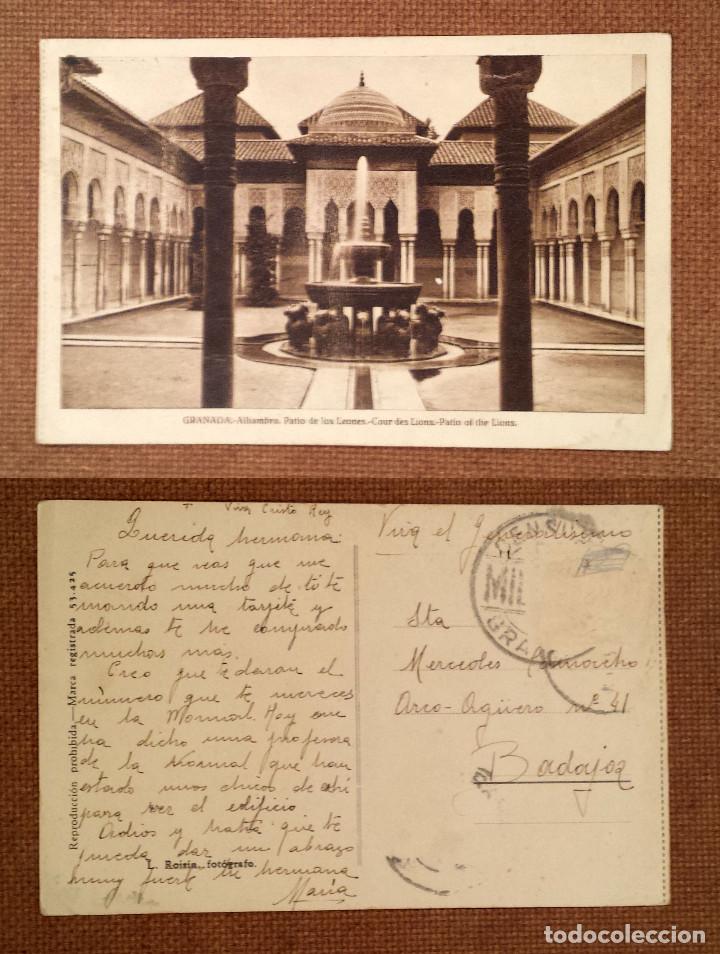 GRANADA.-Alhambra. Patio de los Leones.-Cour des Lions.-Patio of the Lions.
+ Viva Cristo Rey
Querida hermana:
Para que veas que me
acuerdo mucho de ti te
mando una tarjita y
además te he comprado
muchas mas.
Creo que te daran el
número que te mereces
en la Normal. Hoy me
ha dicho una profesora
de la Normal que han
estado unos chicos de ahi
para ver el edificio
Adios y hasta que te
pueda dar un abrazo
muy fuerte tu hermana
María
Reproducción prohibida.—Marca registrada 53.425
L. Roisin, fotógrafo.
Viva el Generalísimo
CENSURA
MIL
GRAN
Sta
Mercedes Camacho
Arco-Agüero nº 41
Badajoz
todocoleccion